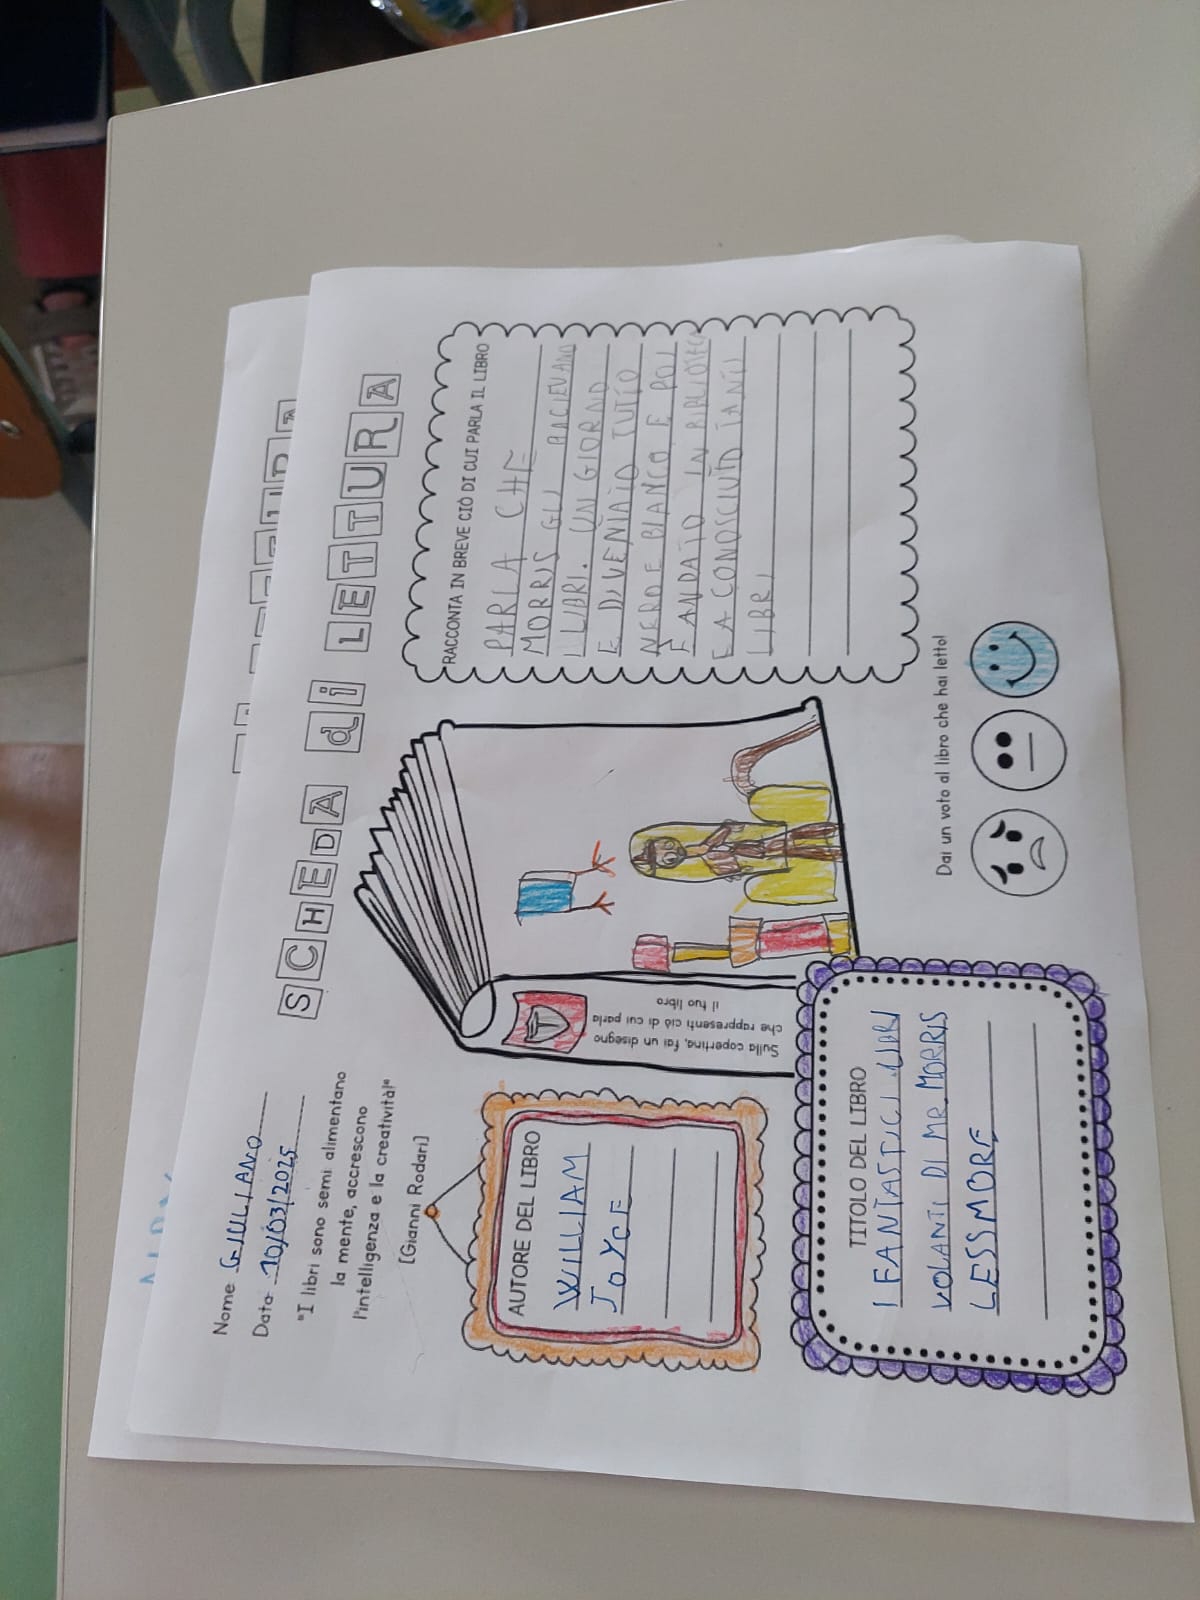 SCHEDA di LETTURA
Nome GIULIANO
Data 10/03/2025
"I libri sono semi alimentano
la mente, accrescono
l'intelligenza e la creatività!"
[Gianni Rodari]
AUTORE DEL LIBRO
WILLIAM
JOYCE
Sulla copertina, fai un disegno
che rappresenti ciò di cui parla
il tuo libro
RACCONTA IN BREVE CIÒ DI CUI PARLA IL LIBRO
PARLA CHE
MORRIS GLI PIACIEVANO
I LIBRI. UN GIORNO
E DIVENTATO TUTTO
NERO E BIANCO E POI
È ANDATO IN BIBLIOTECA
E A CONOSCIUTO TANTI
LIBRI
TITOLO DEL LIBRO
I FANTASTICI LIBRI
VOLANTI DI MR. MORRIS
LESSMORE
Dai un voto al libro che hai letto!